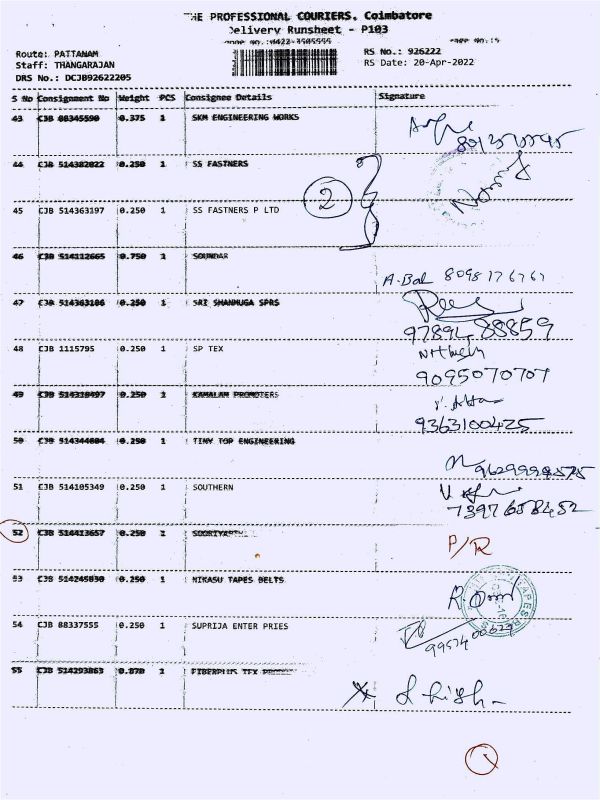 THE PROFESSIONAL COURIERS, Coimbatore
Delivery Runsheet - P103
Phone no.:0422-3505555 Page No.:5
Route: PATTANAM RS No.: 926222
Staff: THANGARAJAN RS Date: 20-Apr-2022
DRS No.: DCJB92622205
S No Consignment No Weight PCS Consignee Details Signature
43 CJB 88345590 0.375 1 SKM ENGINEERING WORKS
44 CJB 514382022 0.250 1 SS FASTNERS
2
45 CJB 514363197 0.250 1 SS FASTNERS P LTD
46 CJB 514112665 0.750 1 SOUNDAR
A. Bal 8098176767
47 CJB 514363186 0.250 1 SRI SHANMUGA SPRS
9789488859
48 CJB 1115795 0.250 1 SP TEX
9095070707
49 CJB 514318497 0.250 1 KAMALAM PROMOTERS
9363100425
50 CJB 514344604 0.250 1 TINY TOP ENGINEERING
51 CJB 514105349 0.250 1 SOUTHERN
7397658452
52 CJB 514413657 0.250 1
P/R
53 CJB 514245030 0.250 1 NIKASU TAPES BELTS
54 CJB 88337555 0.250 1 SUPRIJA ENTER PRIES
55 CJB 514293863 0.870 1 FIBERPLUS TEX